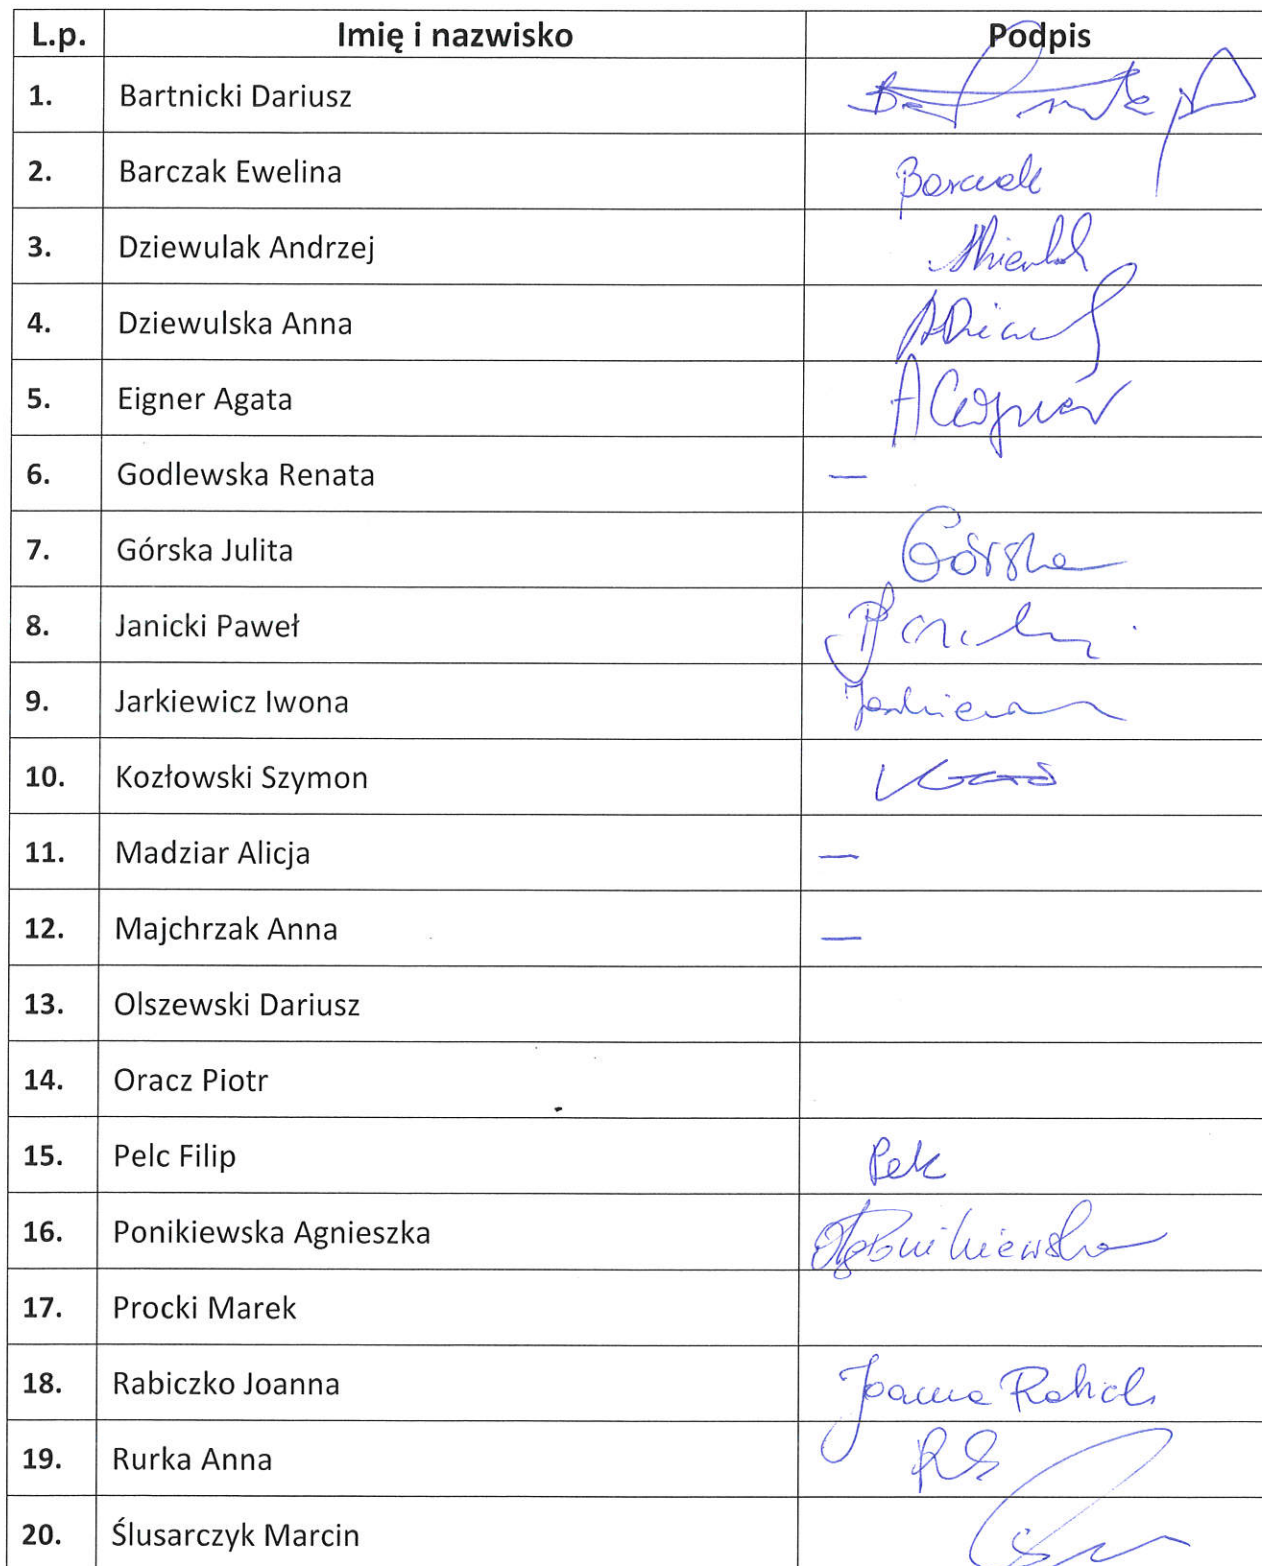 L.p. Imię i nazwisko Podpis
1. Bartnicki Dariusz
2. Barczak Ewelina Barczak
3. Dziewulak Andrzej
4. Dziewulska Anna
5. Eigner Agata
6. Godlewska Renata —
7. Górska Julita Górska
8. Janicki Paweł
9. Jarkiewicz Iwona
10. Kozłowski Szymon
11. Madziar Alicja —
12. Majchrzak Anna —
13. Olszewski Dariusz
14. Oracz Piotr
15. Pelc Filip Pelc
16. Ponikiewska Agnieszka
17. Procki Marek
18. Rabiczko Joanna Joanna
19. Rurka Anna
20. Ślusarczyk Marcin